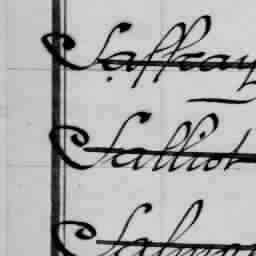 Saffray
Salliot